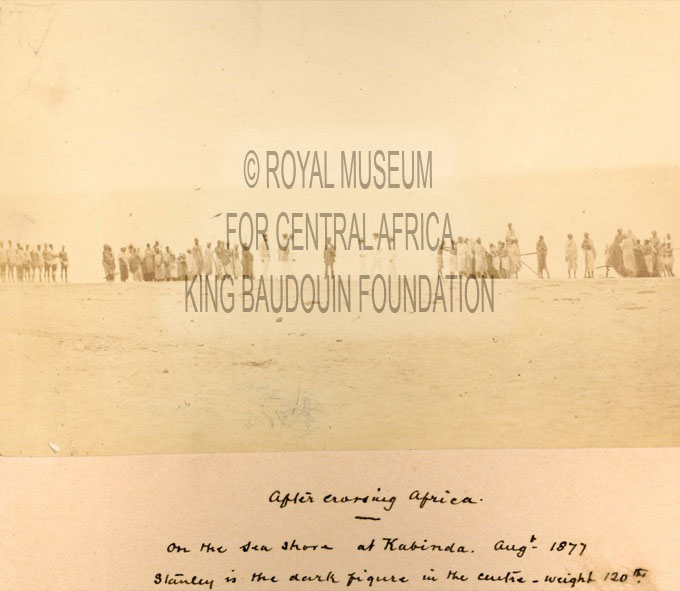 © ROYAL MUSEUM
FOR CENTRAL AFRICA
KING BAUDOUIN FOUNDATION
After crossing Africa.
On the Sea Shore at Kabinda. Augt- 1877
Stanley is the dark figure in the centre - weight 120 lbs.